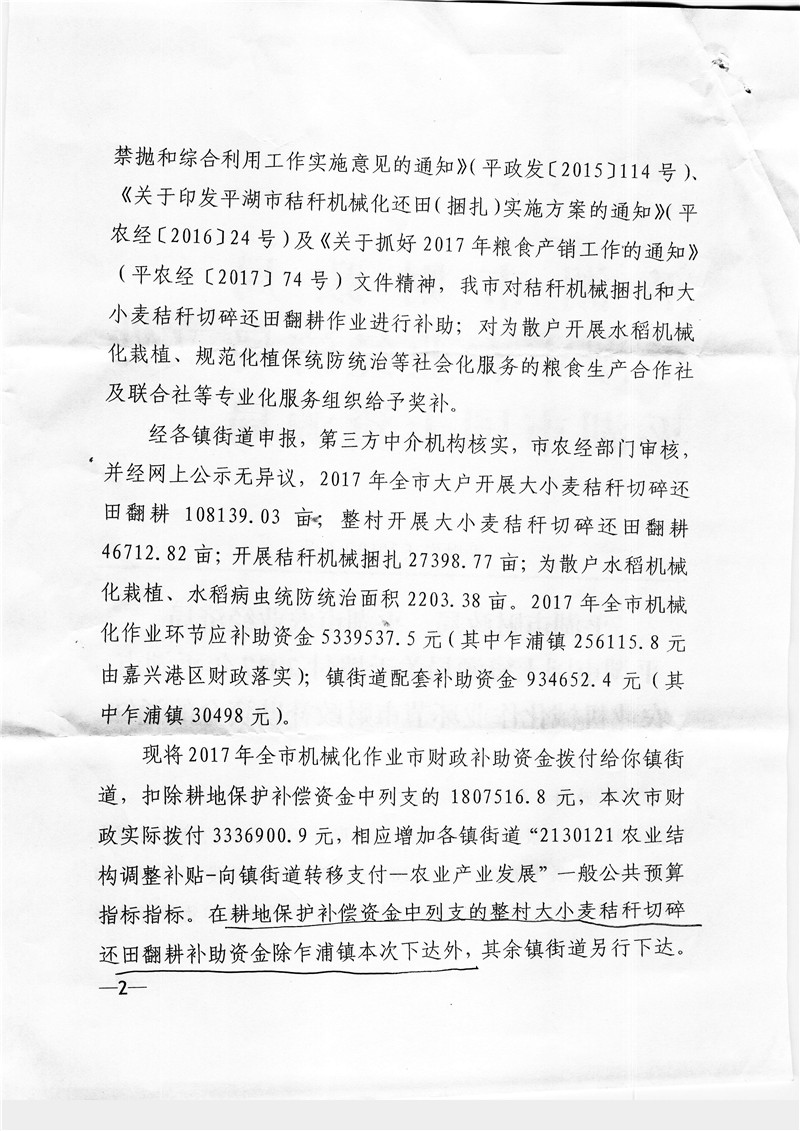 禁抛和综合利用工作实施意见的通知》（平政发〔2015〕114 号）、
《关于印发平湖市秸秆机械化还田（捆扎）实施方案的通知》（平
农经〔2016〕24 号）及《关于抓好 2017 年粮食产销工作的通知》
（平农经〔2017〕74 号）文件精神，我市对秸秆机械捆扎和大
小麦秸秆切碎还田翻耕作业进行补助；对为散户开展水稻机械
化栽植、规范化植保统防统治等社会化服务的粮食生产合作社
及联合社等专业化服务组织给予奖补。
经各镇街道申报，第三方中介机构核实，市农经部门审核，
并经网上公示无异议，2017 年全市大户开展大小麦秸秆切碎还
田翻耕 108139.03 亩；整村开展大小麦秸秆切碎还田翻耕
46712.82 亩；开展秸秆机械捆扎 27398.77 亩；为散户水稻机械
化栽植、水稻病虫统防统治面积 2203.38 亩。2017 年全市机械
化作业环节应补助资金 5339537.5 元（其中乍浦镇 256115.8 元
由嘉兴港区财政落实）；镇街道配套补助资金 934652.4 元（其
中乍浦镇 30498 元）。
现将 2017 年全市机械化作业市财政补助资金拨付给你镇街
道，扣除耕地保护补偿资金中列支的 1807516.8 元，本次市财
政实际拨付 3336900.9 元，相应增加各镇街道“2130121 农业结
构调整补贴-向镇街道转移支付—农业产业发展”一般公共预算
指标指标。在耕地保护补偿资金中列支的整村大小麦秸秆切碎
还田翻耕补助资金除乍浦镇本次下达外，其余镇街道另行下达。
—2—